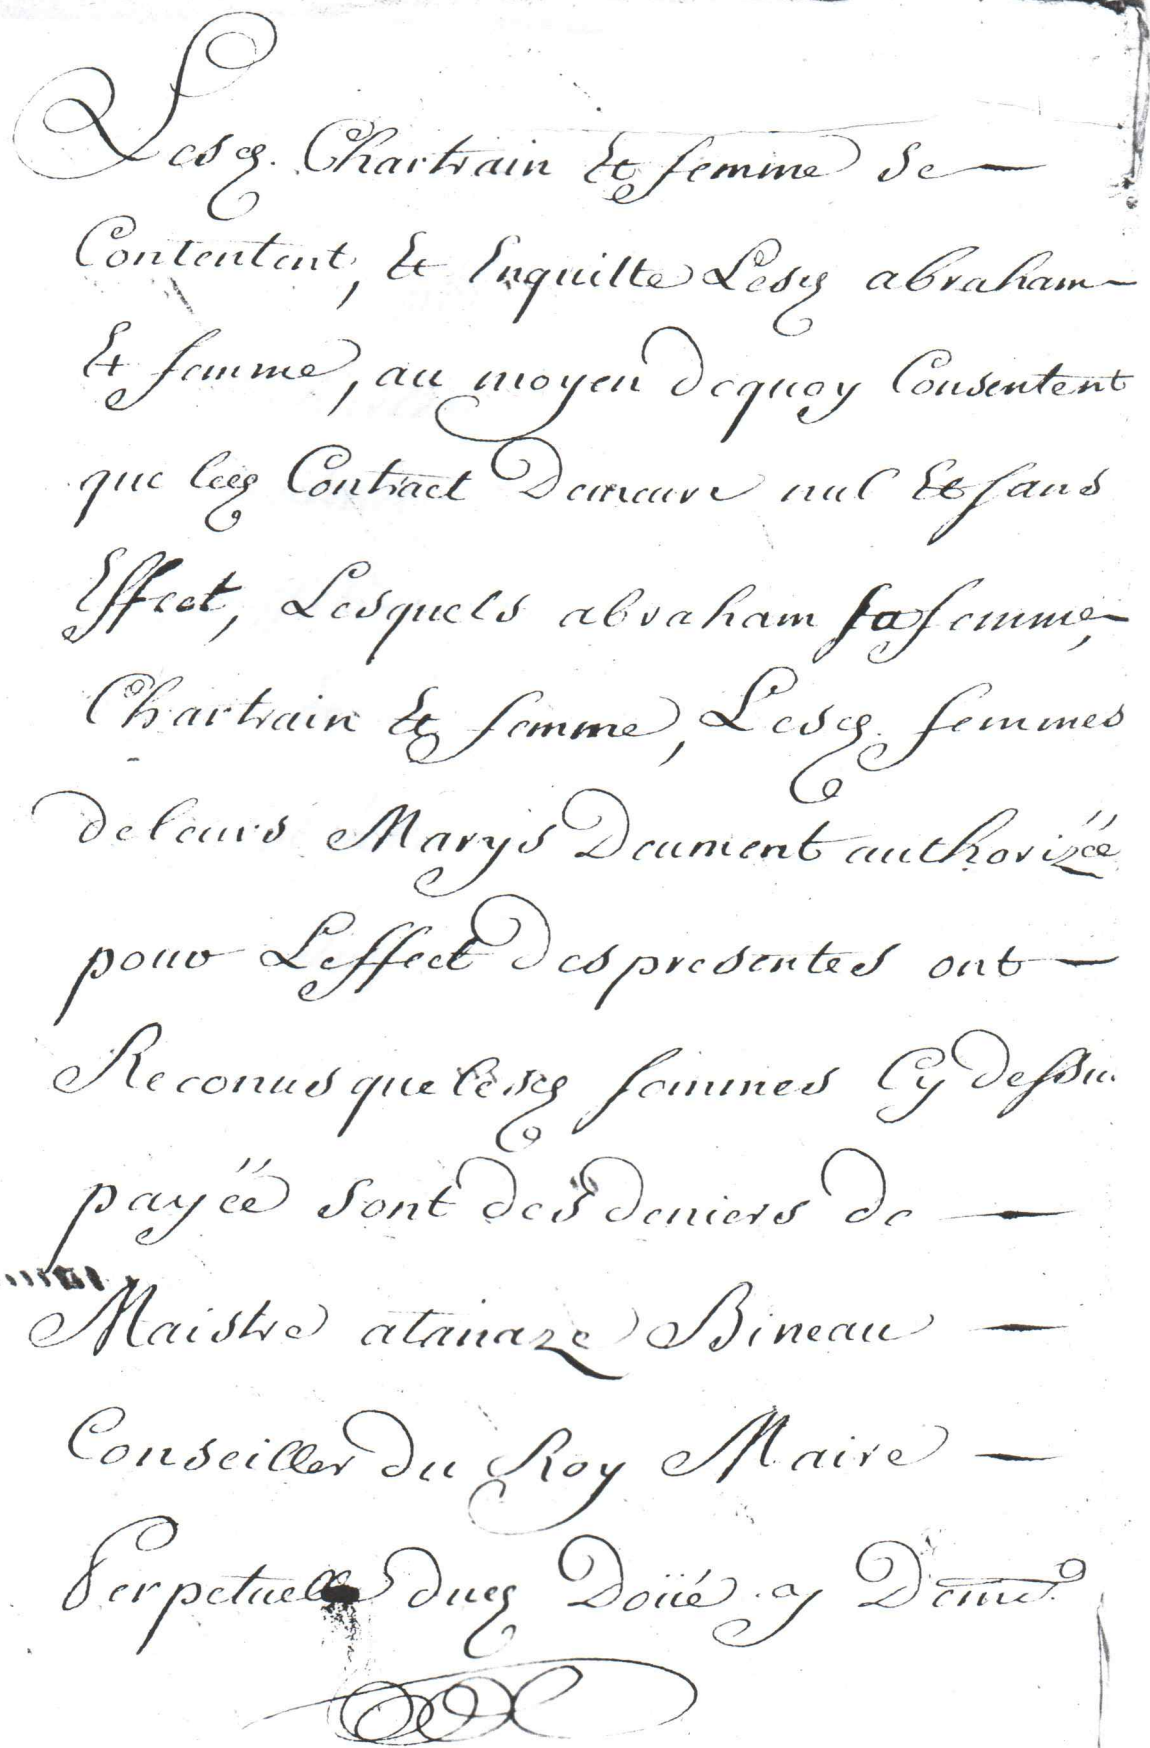 Lesd. Chartrain Et femme se
Contentent, Et Enquitte Lesd abraham
Et femme, au moyen dequoy Consentent
que led Contract Demeure nul Et sans
Effect, Lesquels abraham sa femme,
Chartrain Et femme, Lesd. femmes
de leurs Marys Deument authorizéé
pour L'effect des presentes ont
Reconus que lesd sommes Cy dessu
payéé sont des deniers de
Maistre atanaze Bineau
Conseiller du Roy Maire
Perpetuelle dud Doüé y Deme.